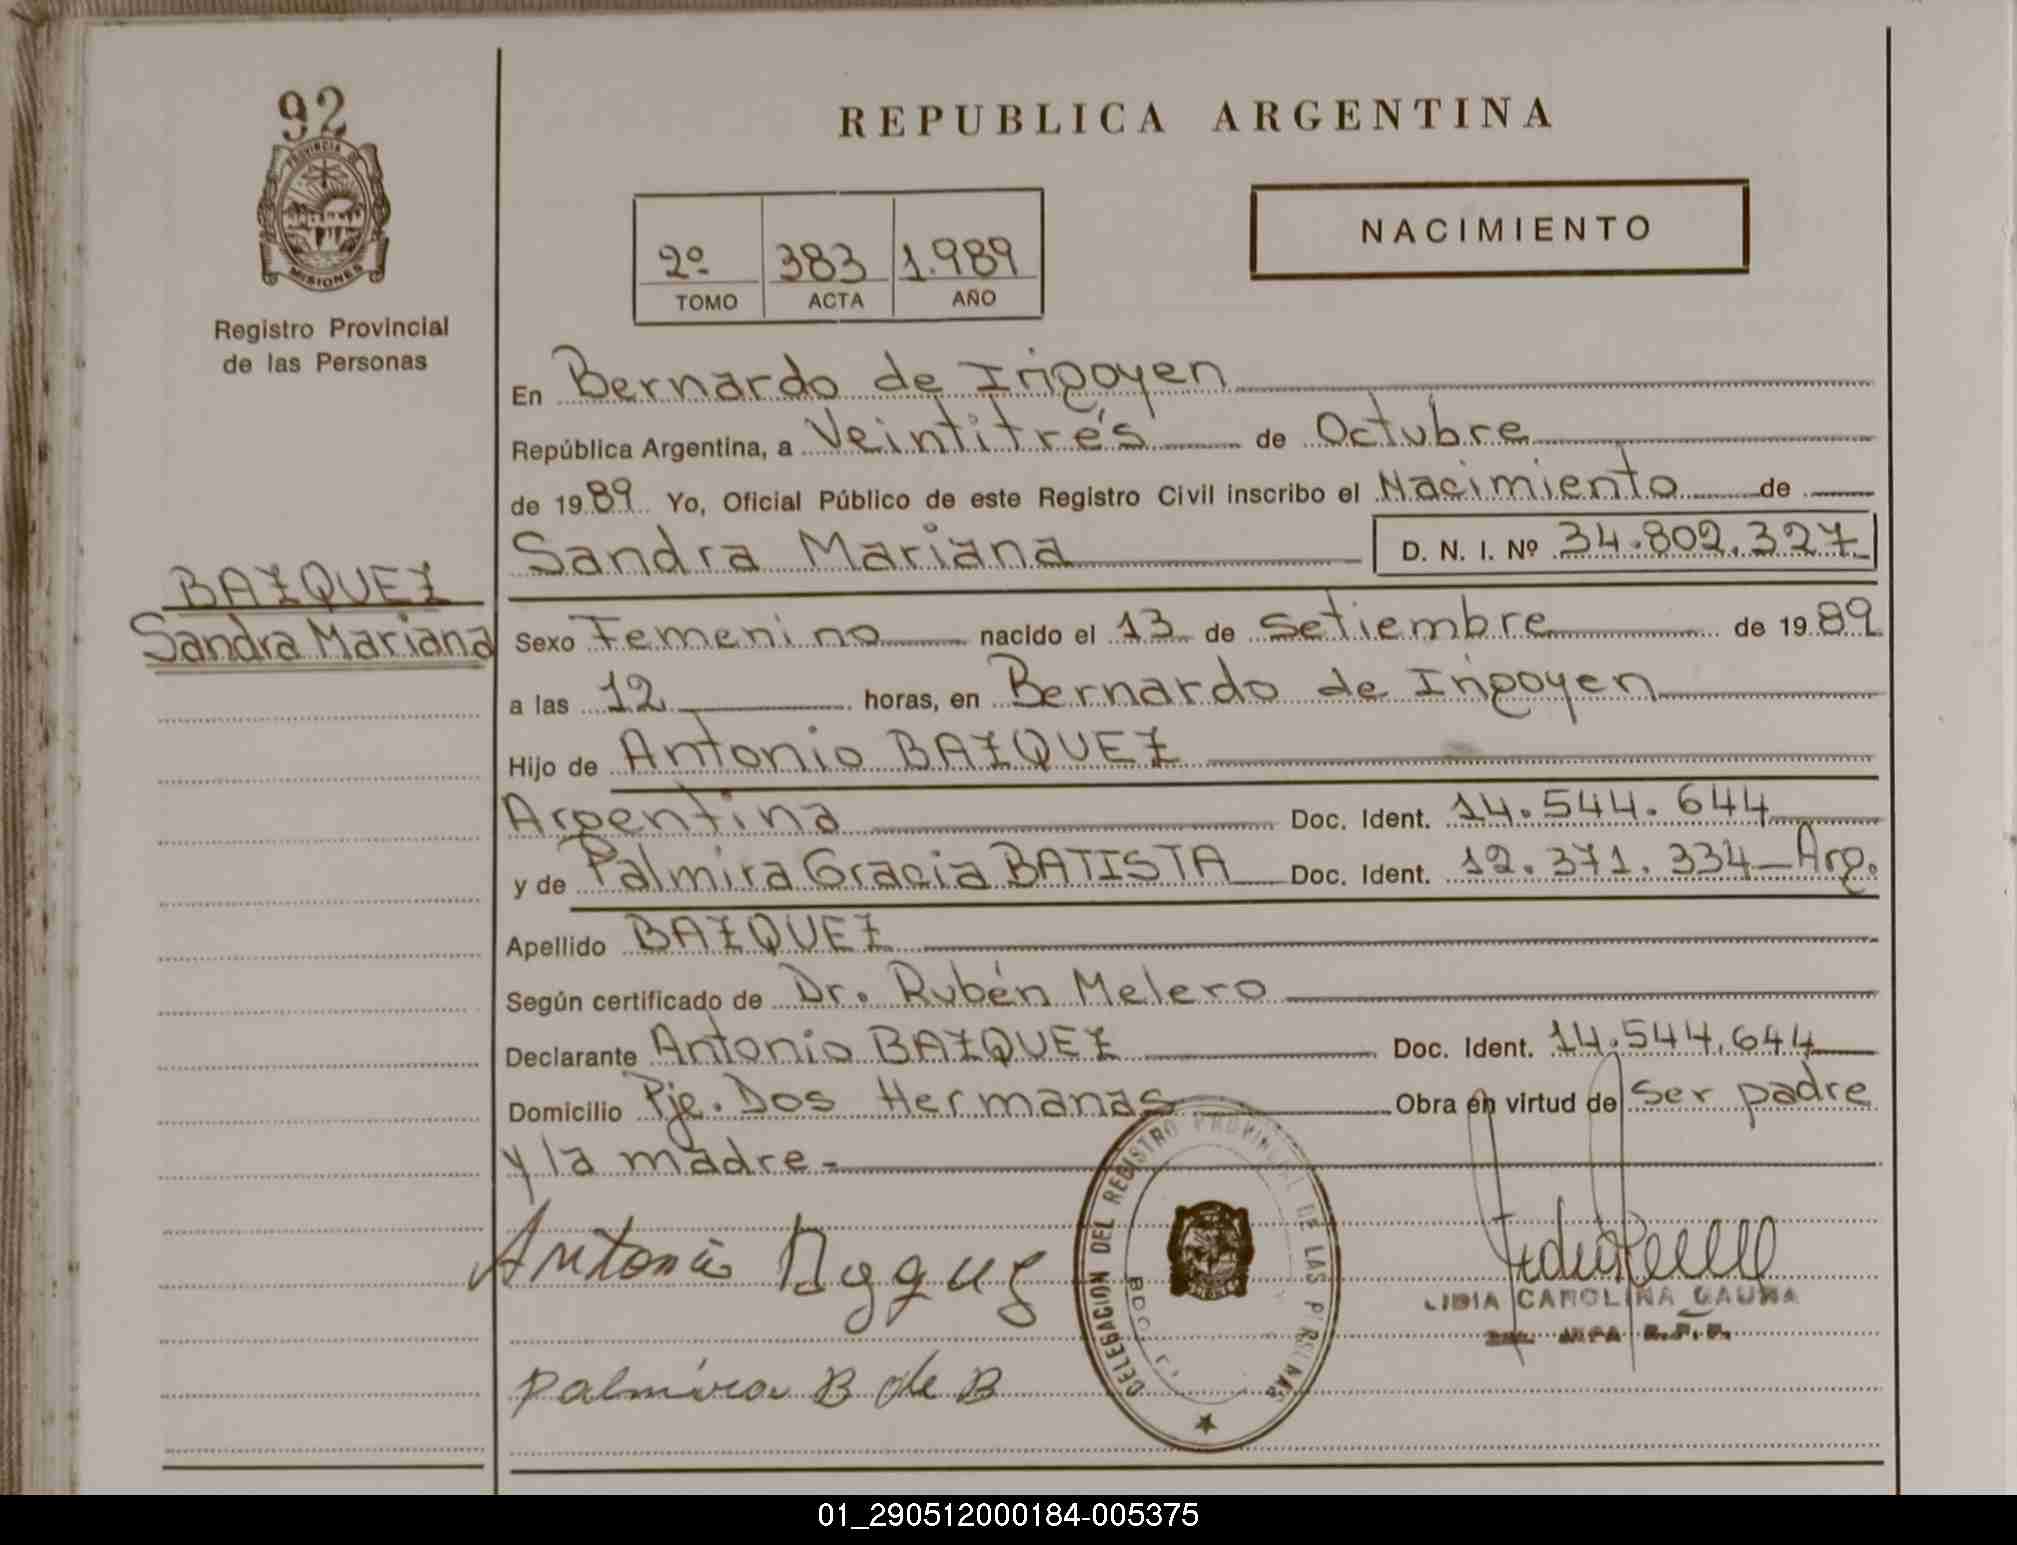 92
PROVINCIA DE
MISIONES
Registro Provincial
de las Personas
BAZQUEZ
Sandra Mariana
REPUBLICA ARGENTINA
NACIMIENTO
2º 383 1.989
TOMO ACTA AÑO
En Bernardo de Irigoyen
República Argentina, a Veintitrés de Octubre
de 1989 Yo, Oficial Público de este Registro Civil inscribo el Nacimiento de
Sandra Mariana D. N. I. Nº 34.802.327
Sexo Femenino nacido el 13 de Setiembre de 1989
a las 12 horas, en Bernardo de Irigoyen
Hijo de Antonio BAZQUEZ
Argentina Doc. Ident. 14.544.644
y de Palmira Gracia BATISTA Doc. Ident. 12.371.334 - Arg.
Apellido BAZQUEZ
Según certificado de Dr. Rubén Melero
Declarante Antonio BAZQUEZ Doc. Ident. 14.544.644
Domicilio Pje. Dos Hermanas Obra en virtud de Ser padre
y la madre.-
Antonio
DELEGACION DEL REGISTRO PROVINCIAL DE LAS PERSONAS
LIDIA CAROLINA
Palmira B de B
01_290512000184-005375